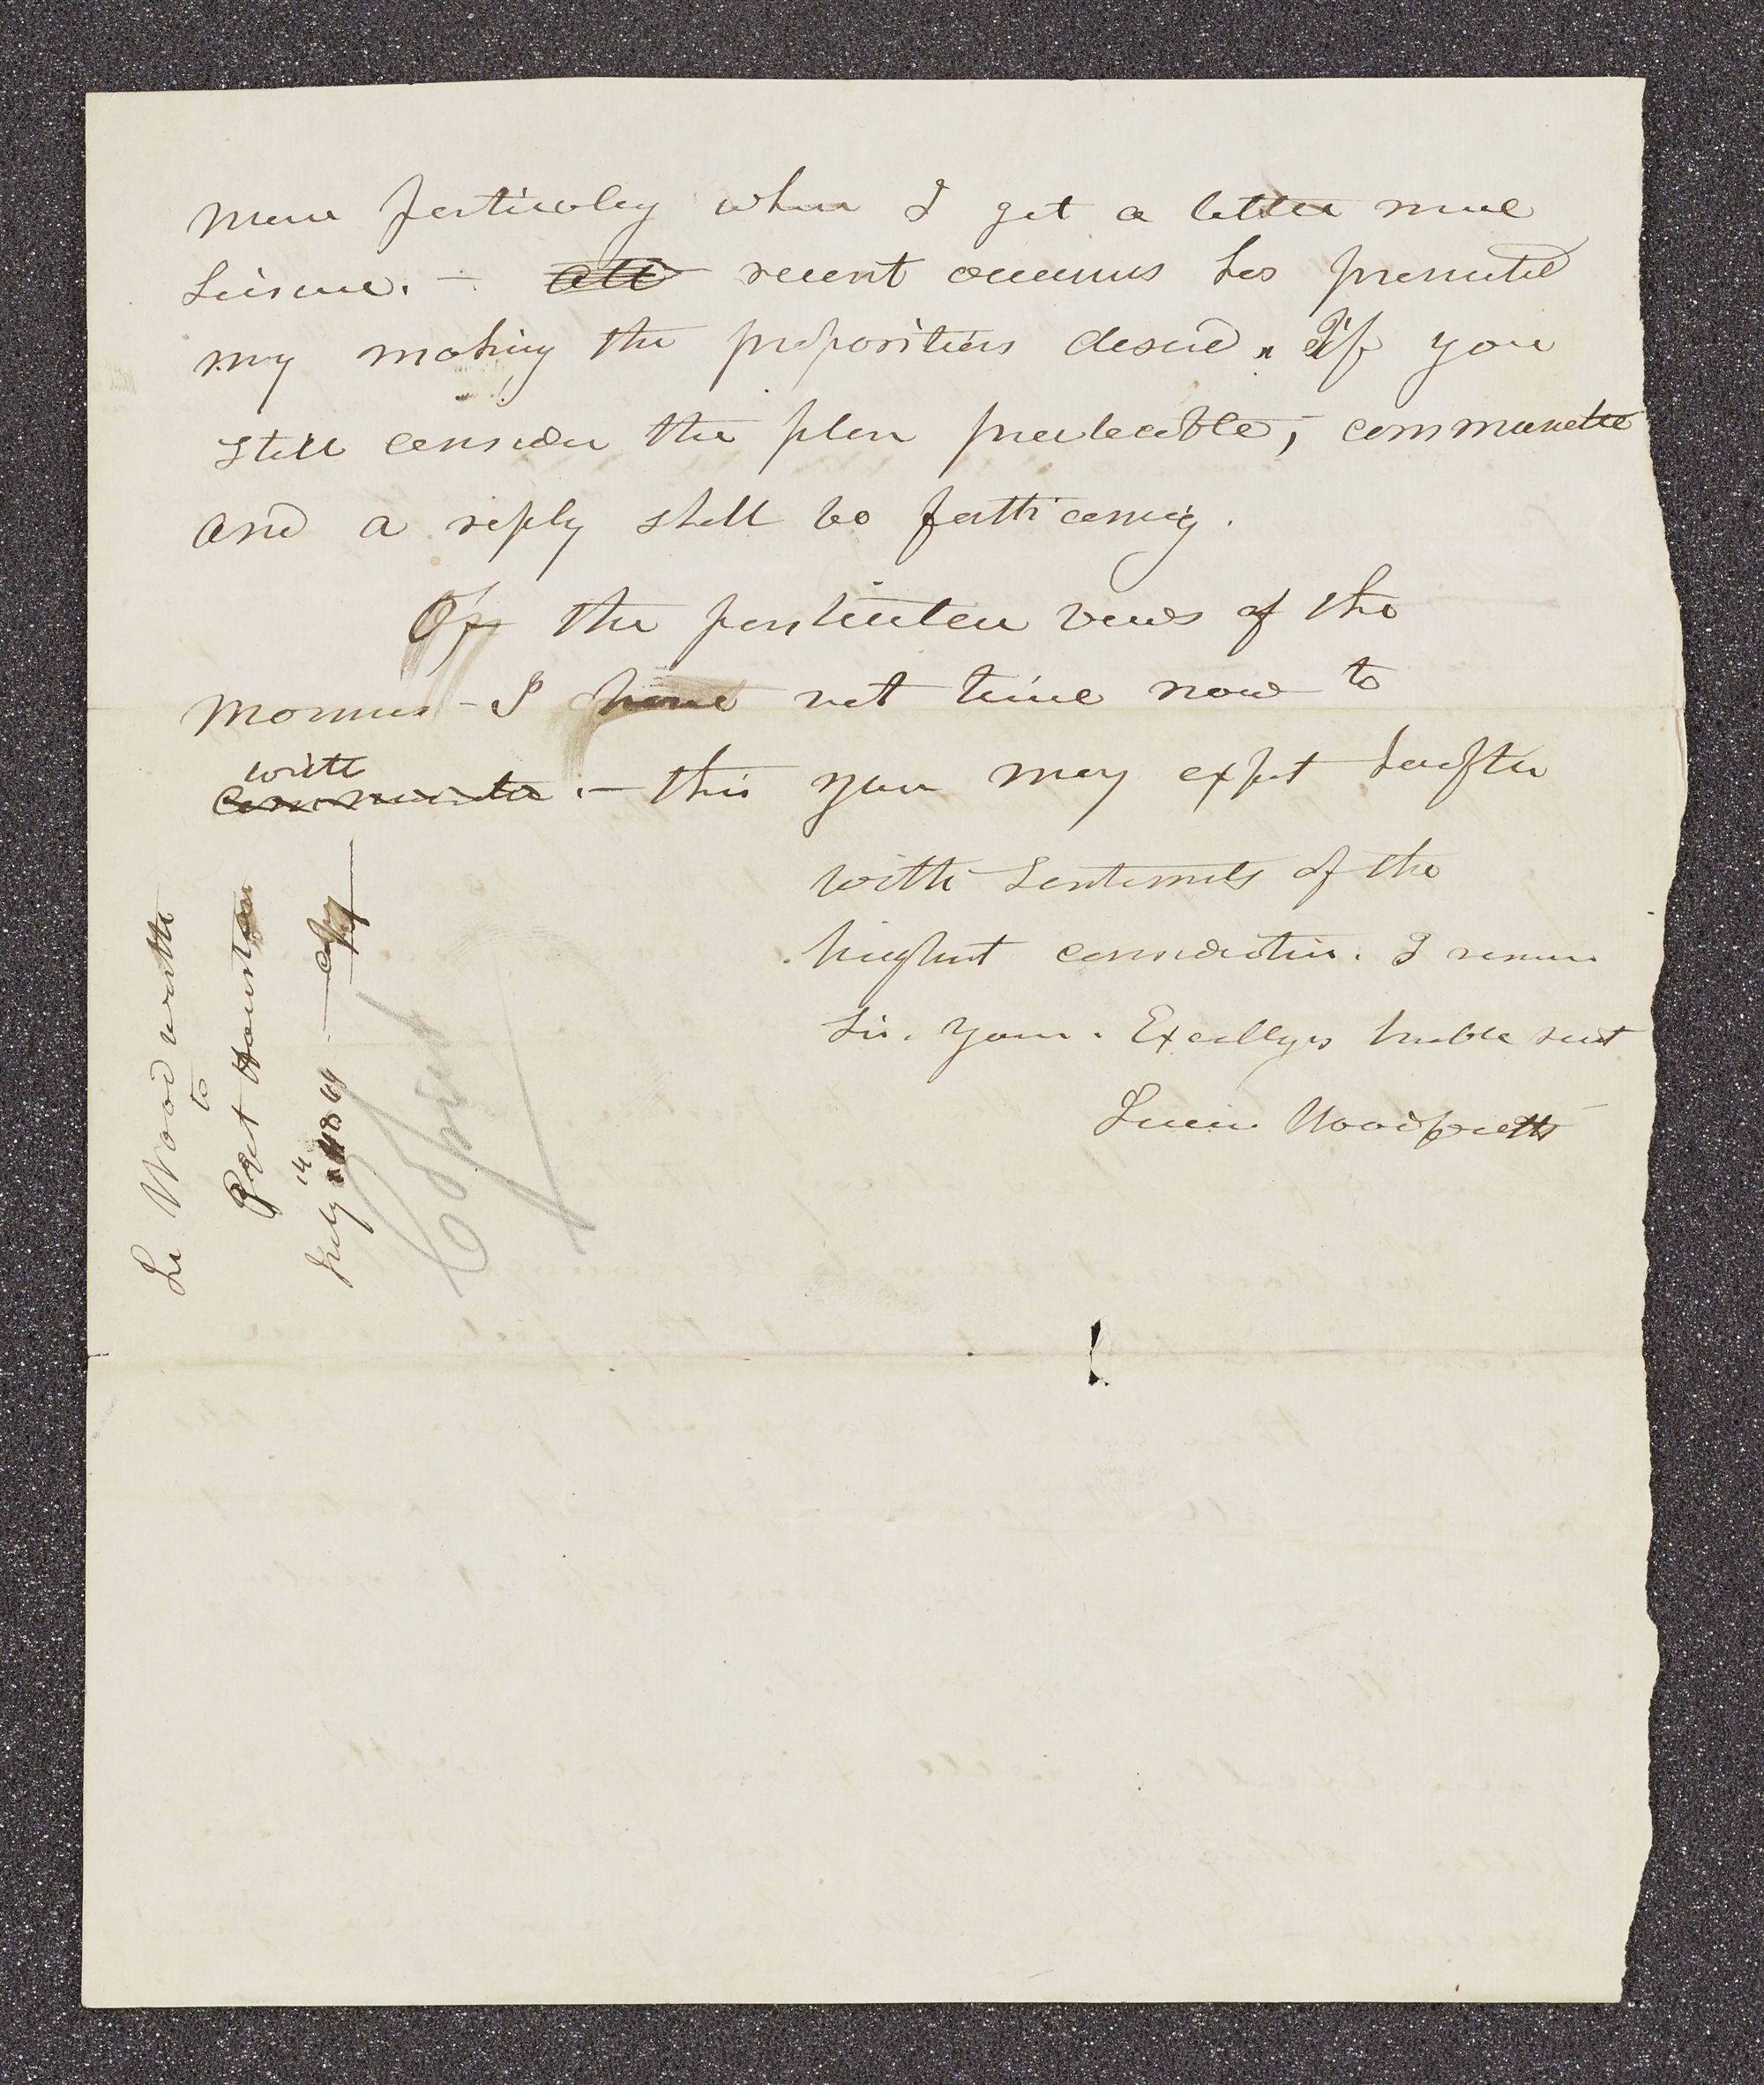 more particulay when I get a little more
Leisure. - all recent occurrens has prevented
my making the propositions desired. If you
still consider the plan practicable, communicate
and a reply shall be forth coming.
Of the particular views of the
Mormns - I have not time now to
write
communicate. - this you may expct hereafter
with Sentiments of the
highest consideration. I remain
Sir. Your. Excellencys humble sert
Lucien Woodworth
Lu Woodworth
to
Prest Houston
July 14 1844 - copy
Copied